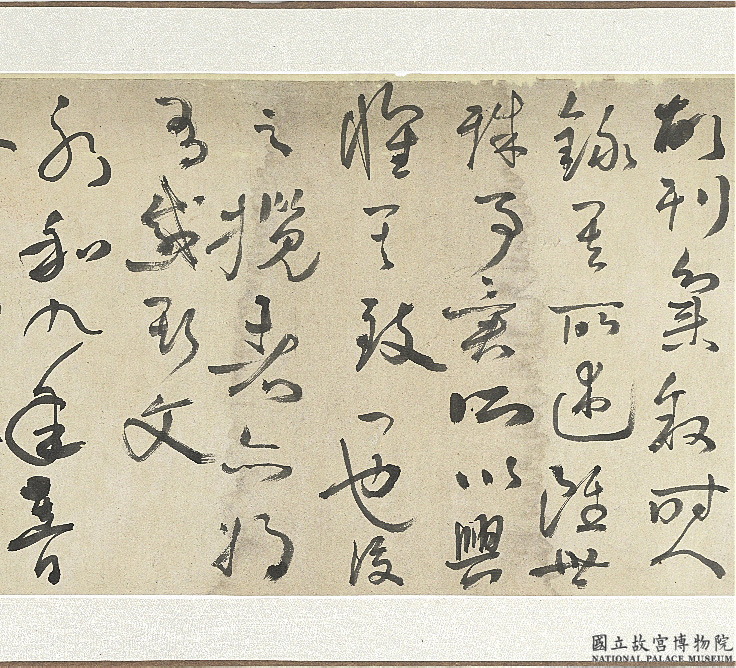 故列敘時人
錄其所述雖世
殊事異所以興
懷其致一也後
之攬者亦將
有感斯文
永和九年
國立故宮博物院
NATIONAL PALACE MUSEUM